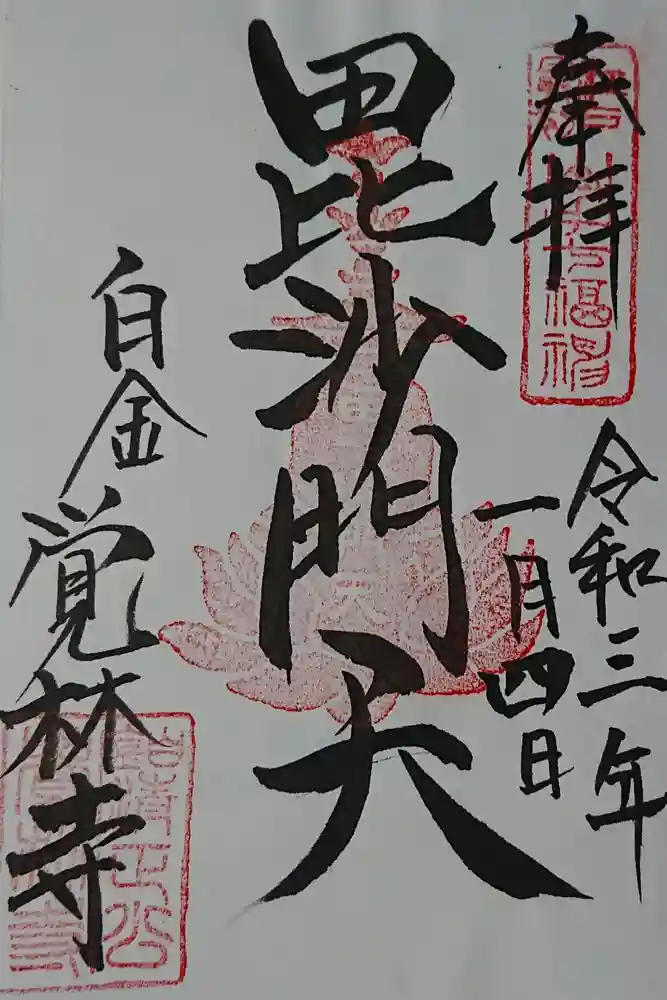 奉拝
令和三年
一月四日
毘沙門天
白金
覚林寺